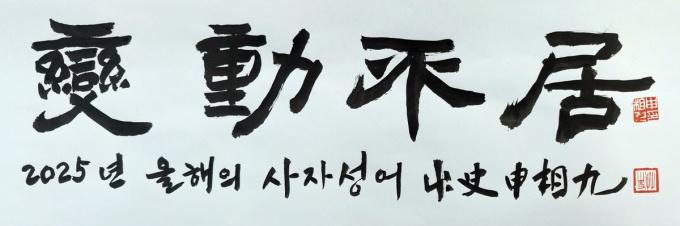 變動不居
2025년 올해의 사자성어 山史 申相九